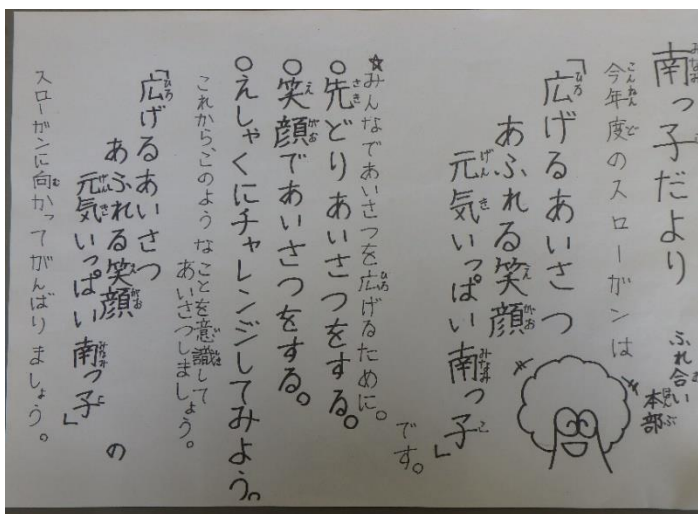 南っ子だより
ふれ合い
本部
今年度のスローガンは
「広げるあいさつ
あふれる笑顔
元気いっぱい南っ子」
です。
☆みんなであいさつを広げるために。
○先どりあいさつをする。
○笑顔であいさつをする。
○えしゃくにチャレンジしてみよう。
これから、このようなことを意識して
あいさつしましょう。
「広げるあいさつ
あふれる笑顔
元気いっぱい南っ子」の
スローガンに向かってがんばりましょう。